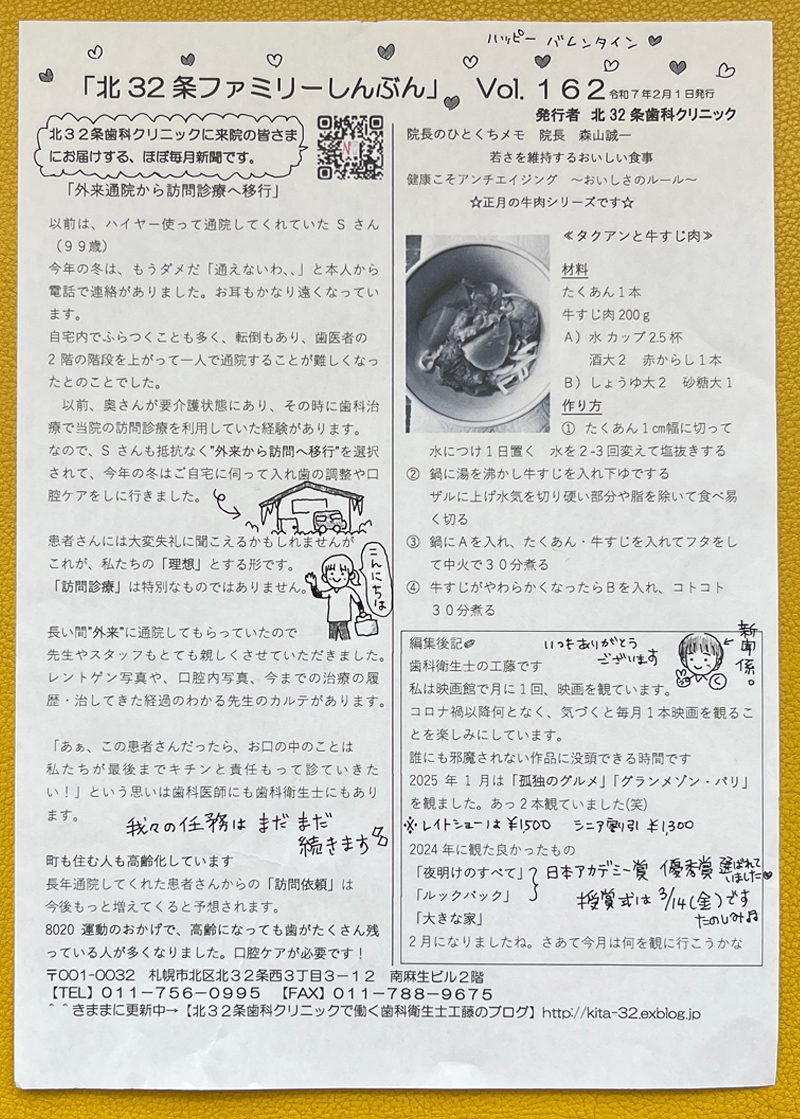 ハッピー バレンタイン
「北32条ファミリーしんぶん」 Vol.162 令和7年2月1日発行
発行者 北32条歯科クリニック
北32条歯科クリニックに来院の皆さま
にお届けする、ほぼ毎月新聞です。
「外来通院から訪問診療へ移行」
以前は、ハイヤー使って通院してくれていたSさん
(99歳)
今年の冬は、もうダメだ「通えないわ、、」と本人から
電話で連絡がありました。お耳もかなり遠くなってい
ます。
自宅内でふらつくことも多く、転倒もあり、歯医者の
2階の階段を上がって一人で通院することが難しくなっ
たとのことでした。
以前、奥さんが要介護状態にあり、その時に歯科治
療で当院の訪問診療を利用していた経験があります。
なので、Sさんも抵抗なく"外来から訪問へ移行"を選択
されて、今年の冬はご自宅に伺って入れ歯の調整や口
腔ケアをしに行きました。
患者さんには大変失礼に聞こえるかもしれませんが
これが、私たちの「理想」とする形です。
「訪問診療」は特別なものではありません。
こんにちは
長い間"外来"に通院してもらっていたので
先生やスタッフもとても親しくさせていただきました。
レントゲン写真や、口腔内写真、今までの治療の履
歴・治してきた経過のわかる先生のカルテがあります。
「あぁ、この患者さんだったら、お口の中のことは
私たちが最後までキチンと責任もって診ていきた
い!」という思いは歯科医師にも歯科衛生士にもあり
ます。
我々の任務は まだまだ
続きます
町も住む人も高齢化しています
長年通院してくれた患者さんからの「訪問依頼」は
今後もっと増えてくると予想されます。
8020運動のおかげで、高齢になっても歯がたくさん残
っている人が多くなりました。口腔ケアが必要です!
院長のひとくちメモ 院長 森山誠一
若さを維持するおいしい食事
健康こそアンチエイジング ~おいしさのルール~
☆正月の牛肉シリーズです☆
≪タクアンと牛すじ肉≫
材料
たくあん1本
牛すじ肉200g
A)水 カップ2.5杯
酒大2 赤からし1本
B)しょうゆ大2 砂糖大1
作り方
① たくあん1cm幅に切って
水につけ1日置く 水を2-3回変えて塩抜きする
② 鍋に湯を沸かし牛すじを入れ下ゆでする
ザルに上げ水気を切り硬い部分や脂を除いて食べ易
く切る
③ 鍋にAを入れ、たくあん・牛すじを入れてフタをし
て中火で30分煮る
④ 牛すじがやわらかくなったらBを入れ、コトコト
30分煮る
編集後記
いつもありがとう
ございます
新聞係。
歯科衛生士の工藤です
私は映画館で月に1回、映画を観ています。
コロナ禍以降何となく、気づくと毎月1本映画を観るこ
とを楽しみにしています。
誰にも邪魔されない作品に没頭できる時間です
2025年1月は「孤独のグルメ」「グランメゾン・パリ」
を観ました。あっ2本観ていました(笑)
※レイトショーは¥1500 シニア割引 ¥1,300
2024年に観た良かったもの
「夜明けのすべて」
「ルックバック」
「大きな家」
日本アカデミー賞 優秀賞 選ばれて
いました♥
授賞式は 3/14(金)です
たのしみ♫
2月になりましたね。さあて今月は何を観に行こうかな
〒001-0032 札幌市北区北32条西3丁目3-12 南麻生ビル2階
【TEL】011-756-0995 【FAX】011-788-9675
^^きままに更新中→【北32条歯科クリニックで働く歯科衛生士工藤のブログ】http://kita-32.exblog.jp